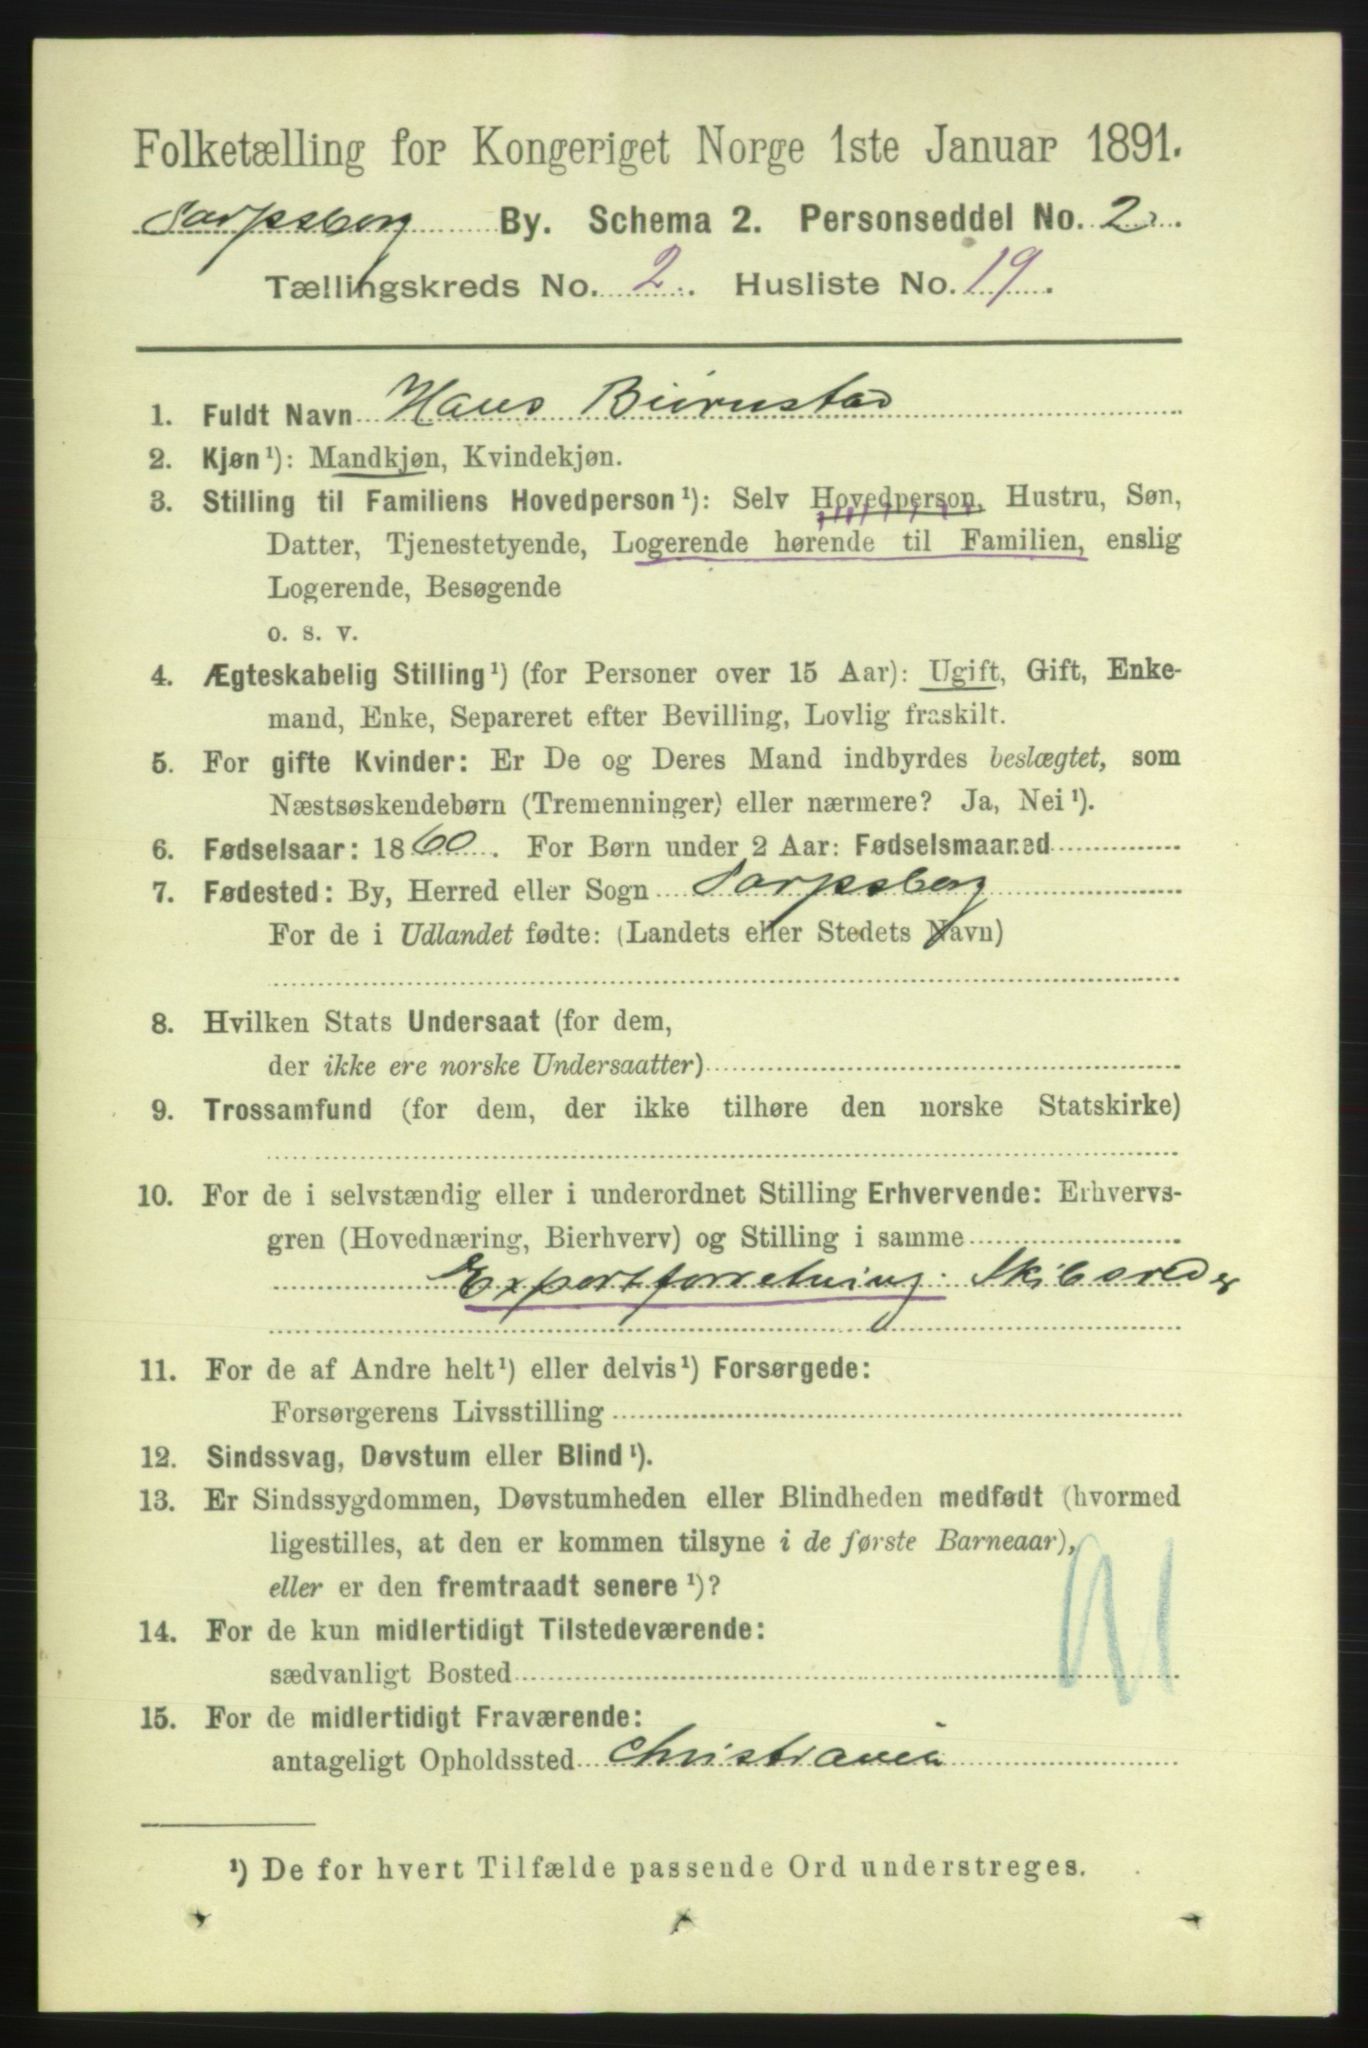 Folketælling for Kongeriget Norge 1ste Januar 1891.
Sarpsborg By. Schema 2. Personseddel No. 2.
Tællingskreds No. 2. Husliste No. 19.
1. Fuldt Navn Hans Biörnstad
2. Kjøn¹): Mandkjøn, Kvindekjøn.
3. Stilling til Familiens Hovedperson¹): Selv Hovedperson, Hustru, Søn,
Datter, Tjenestetyende, Logerende hørende til Familien, enslig
Logerende, Besøgende
o. s. v.
4. Ægteskabelig Stilling¹) (for Personer over 15 Aar): Ugift, Gift, Enke-
mand, Enke, Separeret efter Bevilling, Lovlig fraskilt.
5. For gifte Kvinder: Er De og Deres Mand indbyrdes beslægtet, som
Næstsøskendebørn (Tremenninger) eller nærmere? Ja, Nei¹).
6. Fødselsaar: 1860. For Børn under 2 Aar: Fødselsmaaned
7. Fødested: By, Herred eller Sogn Sarpsborg
For de i Udlandet fødte: (Landets eller Stedets Navn)
8. Hvilken Stats Undersaat (for dem,
der ikke ere norske Undersaatter)
9. Trossamfund (for dem, der ikke tilhøre den norske Statskirke)
10. For de i selvstændig eller i underordnet Stilling Erhvervende: Erhvervs-
gren (Hovednæring, Bierhverv) og Stilling i samme
Exportforretning. Skibsreder
11. For de af Andre helt¹) eller delvis¹) Forsørgede:
Forsørgerens Livsstilling
12. Sindssvag, Døvstum eller Blind¹).
13. Er Sindssygdommen, Døvstumheden eller Blindheden medfødt (hvormed
ligestilles, at den er kommen tilsyne i de første Barneaar),
eller er den fremtraadt senere¹)?
14. For de kun midlertidigt Tilstedeværende:
sædvanligt Bosted
15. For de midlertidigt Fraværende:
antageligt Opholdssted Christiania
¹) De for hvert Tilfælde passende Ord understreges.